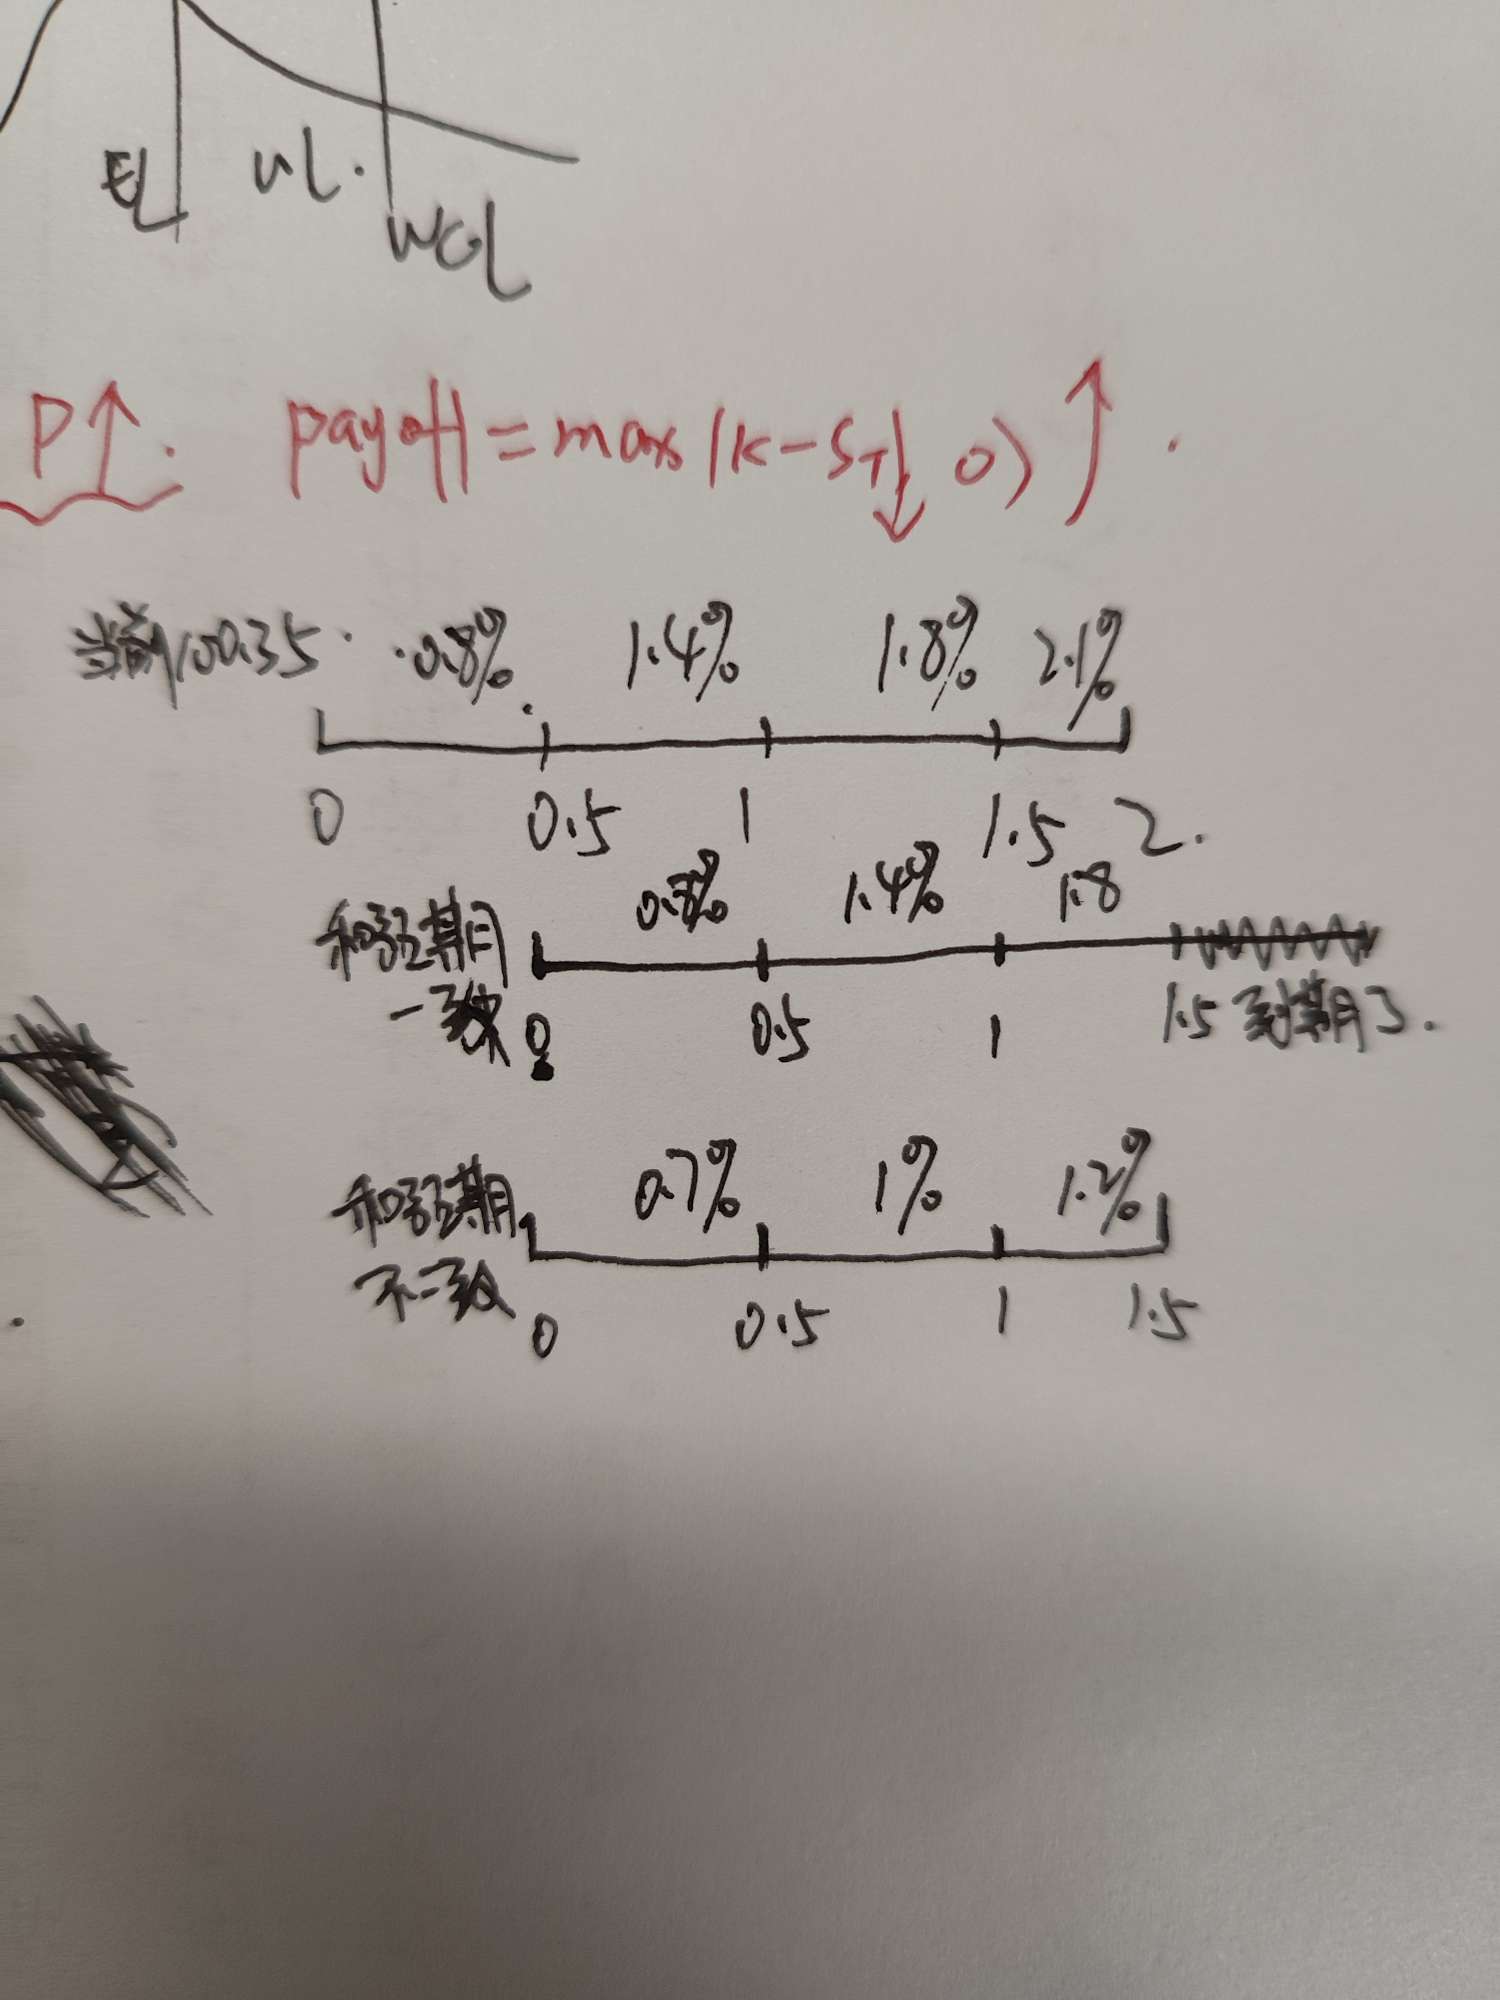 EL UL. WCL
P↑. payoff = max(K-ST↓ 0)↑.
当前100.35 0.8% 1.4% 1.8% 2.1%
0 0.5 1 1.5 2.
0.8% 1.4% 1.8
和预期一致
0 0.5 1 1.5 到期了.
0.7% 1% 1.2%
和预期不一致
0 0.5 1 1.5